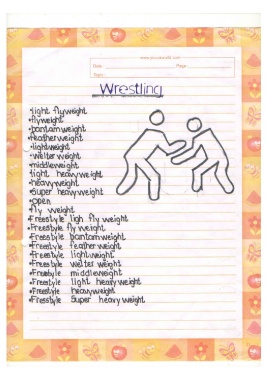 Date
Page
Topic
Wrestling
•light flyweight
•flyweight
•bantamweight
•featherweight
•lightweight
•welter weight
•middleweight
•light heavyweight
•heavyweight
•super heavyweight
•open
•fly weight
•Freestyle ligh fly weight
•Freestyle fly weight
•Freestyle bantamweight
•Freestyle feather weight
•Freestyle lightweight
•Freestyle welter weight
•Freestyle middleweight
•Freestyle light heavyweight
•Freestyle heavyweight
•Freestyle Super heavyweight